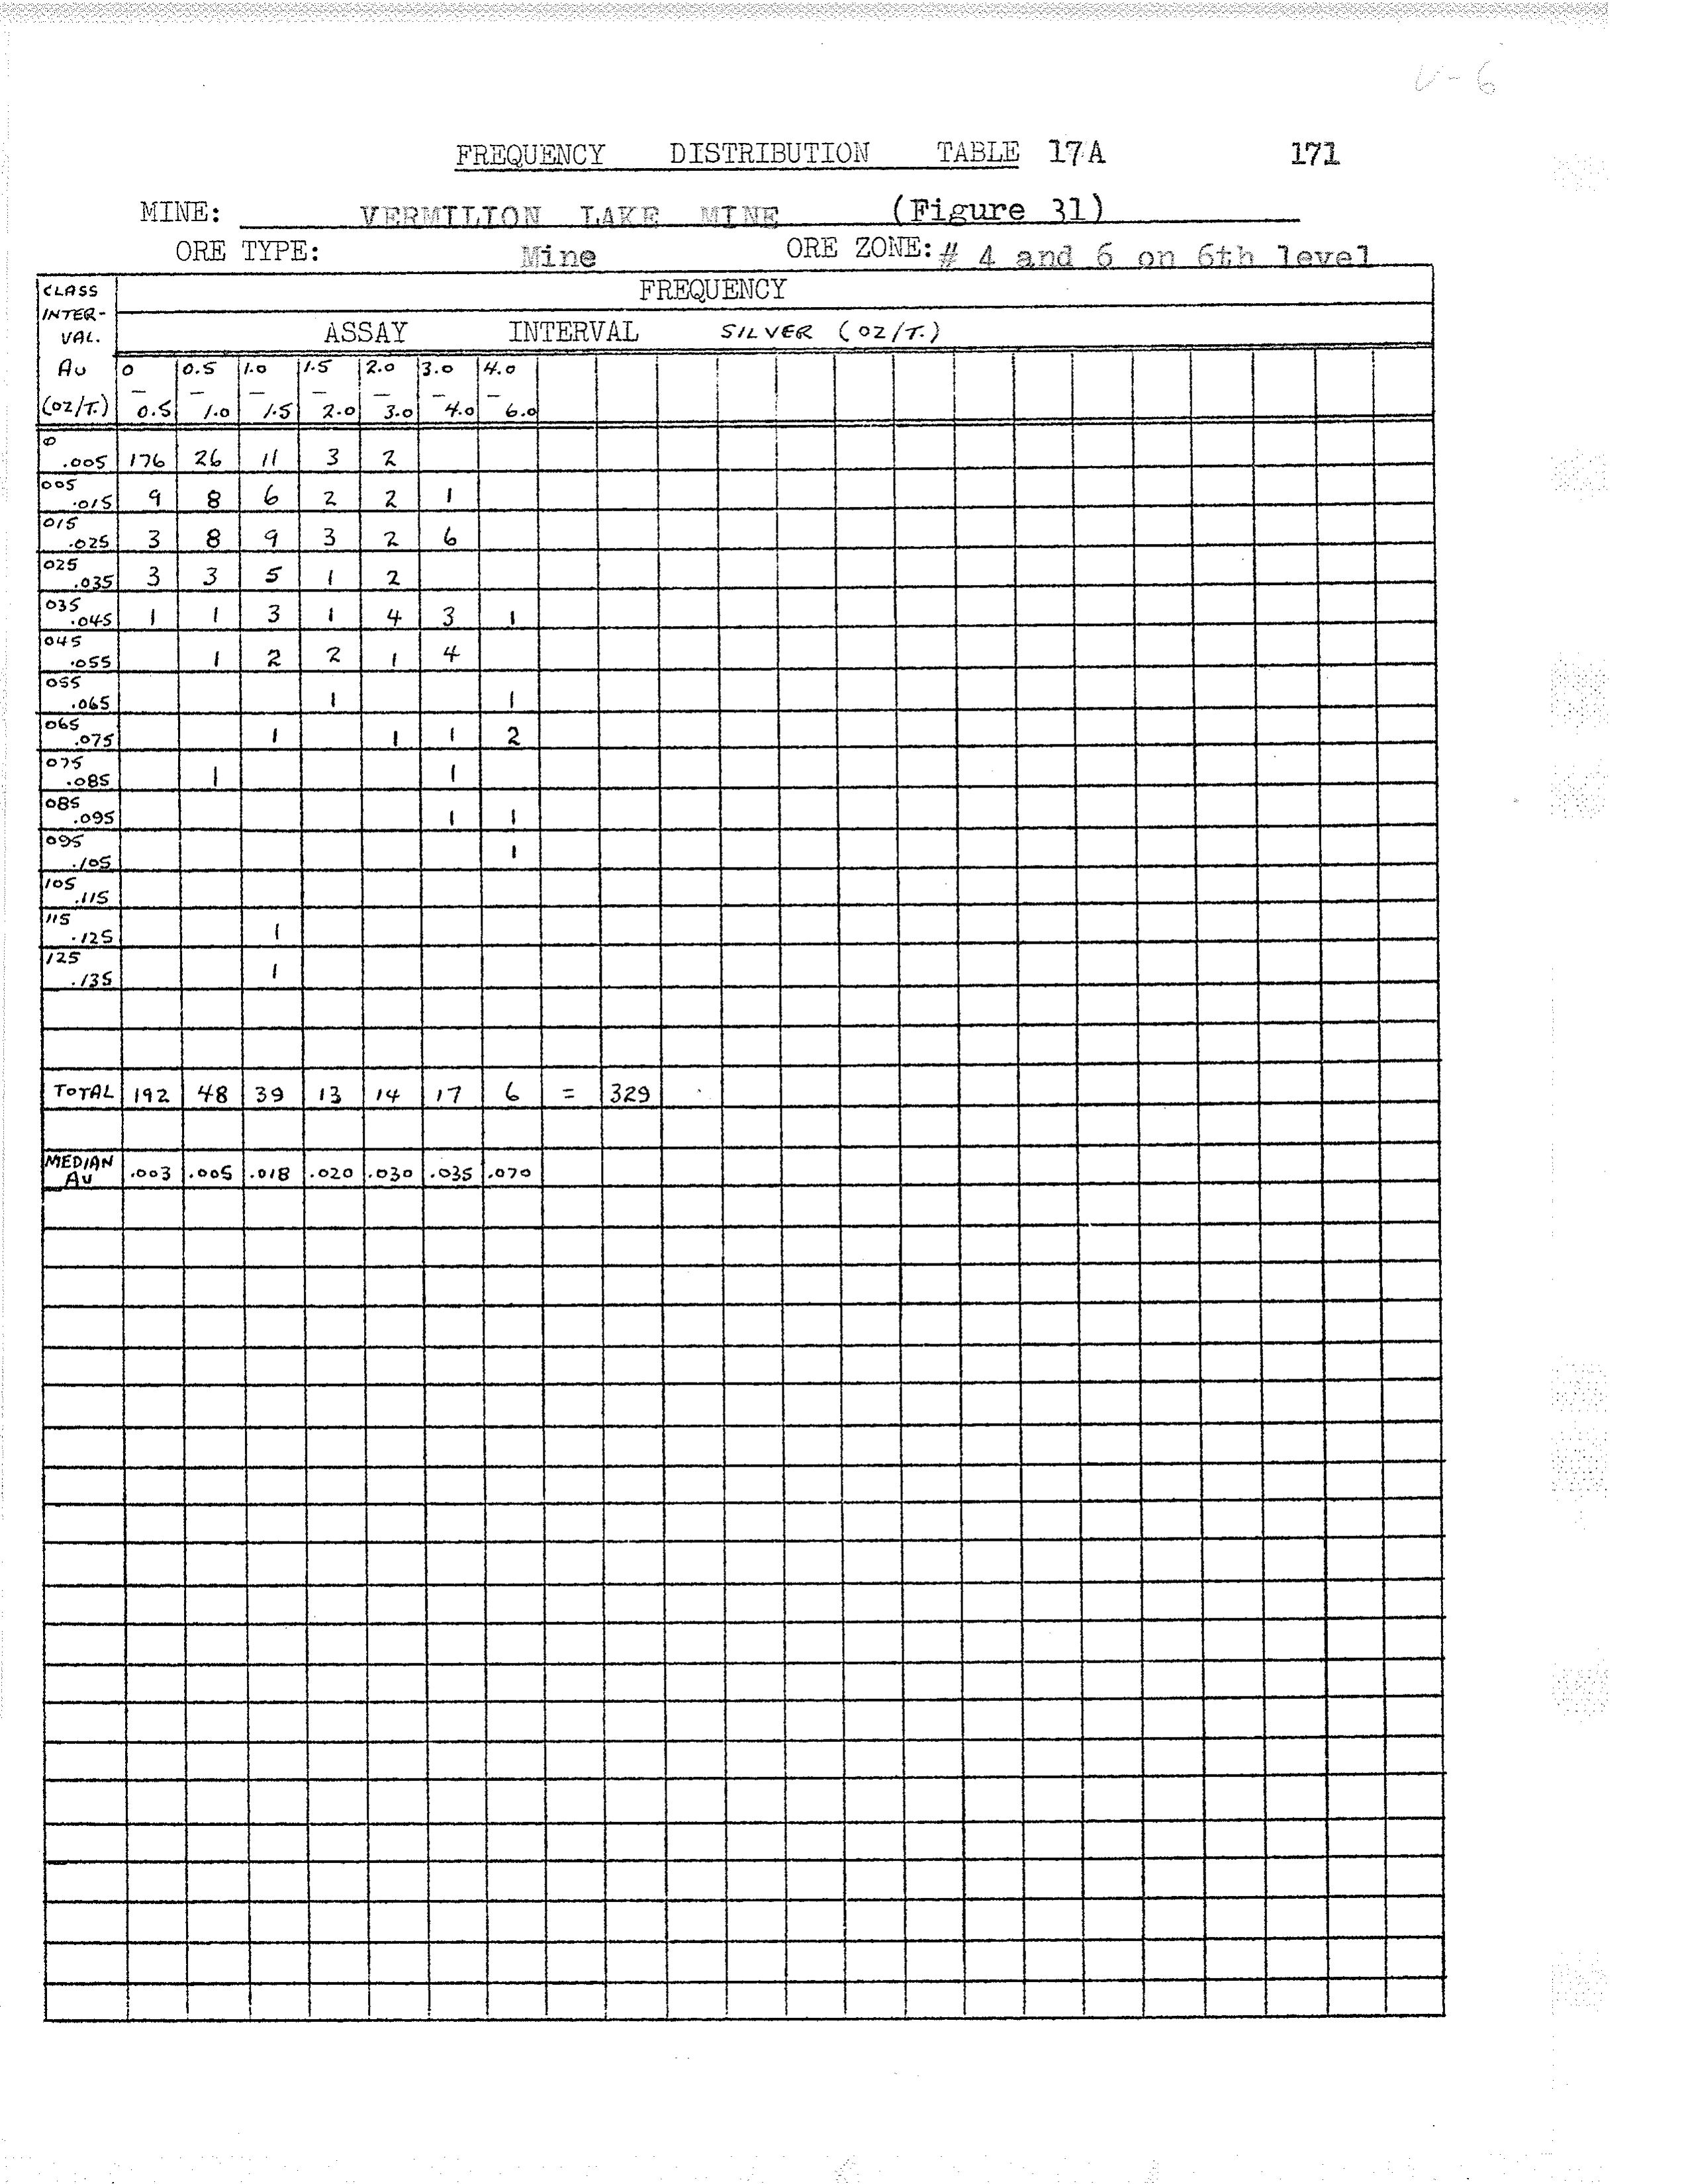 V-6
FREQUENCY DISTRIBUTION TABLE 17A 171
MINE: VERMILION LAKE MINE (Figure 31)
ORE TYPE: Mine ORE ZONE: # 4 and 6 on 6th level
CLASS INTER- VAL. Au (OZ/T.)
FREQUENCY
ASSAY INTERVAL SILVER (OZ/T.)
0 – 0.5 0.5 – 1.0 1.0 – 1.5 1.5 – 2.0 2.0 – 3.0 3.0 – 4.0 4.0 – 6.0
0 .005 176 26 11 3 2
005 .015 9 8 6 2 2 1
015 .025 3 8 9 3 2 6
025 .035 3 3 5 1 2
035 .045 1 1 3 1 4 3 1
045 .055 1 2 2 1 4
055 .065 1 1
065 .075 1 1 1 2
075 .085 1 1
085 .095 1 1
095 .105 1
105 .115
115 .125 1
125 .135 1
TOTAL 192 48 39 13 14 17 6 = 329
MEDIAN AU .003 .005 .018 .020 .030 .035 .070